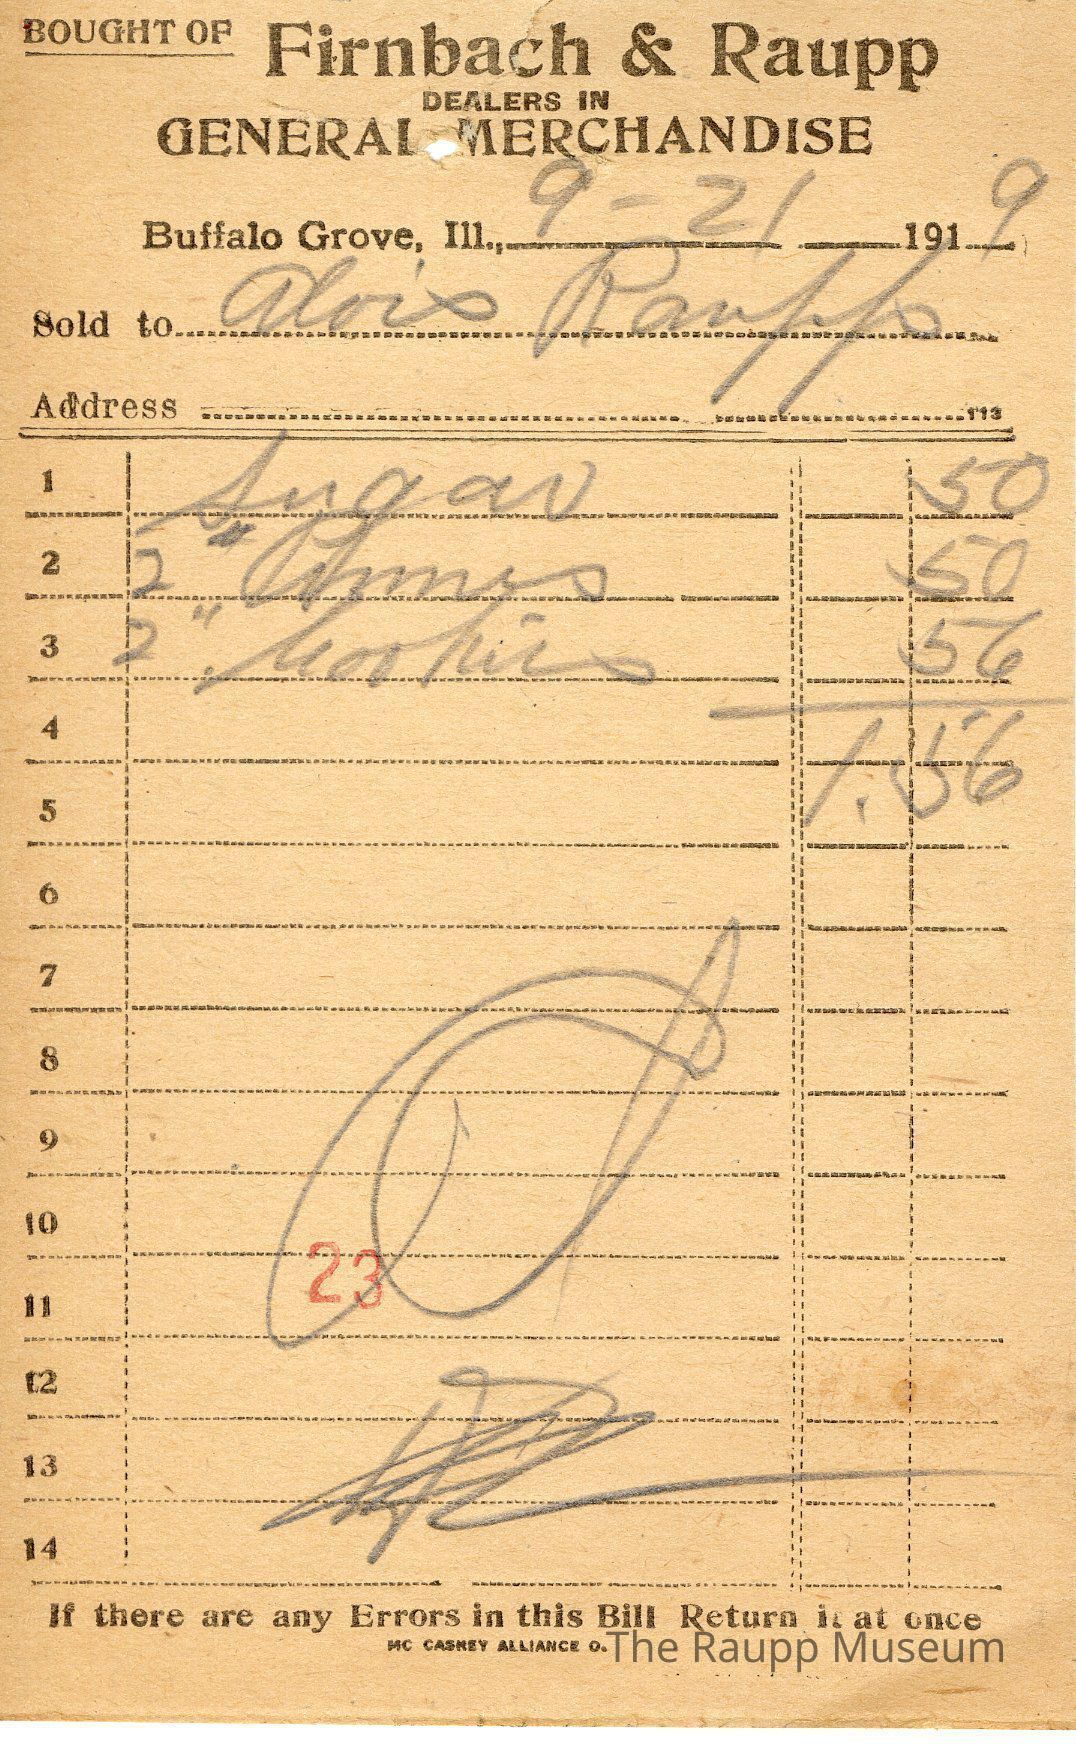 BOUGHT OF Firnbach & Raupp
DEALERS IN
GENERAL MERCHANDISE
Buffalo Grove, Ill., 9-21 1919
Sold to Alois Raupp
Address 113
1 Sugar 50
2 2 " Prunes 50
3 2 " Cookies 56
4 1.56
5
6
7
8
9
10
23
11
12
13
14
If there are any Errors in this Bill Return it at once
MC CASKEY ALLIANCE O.
The Raupp Museum